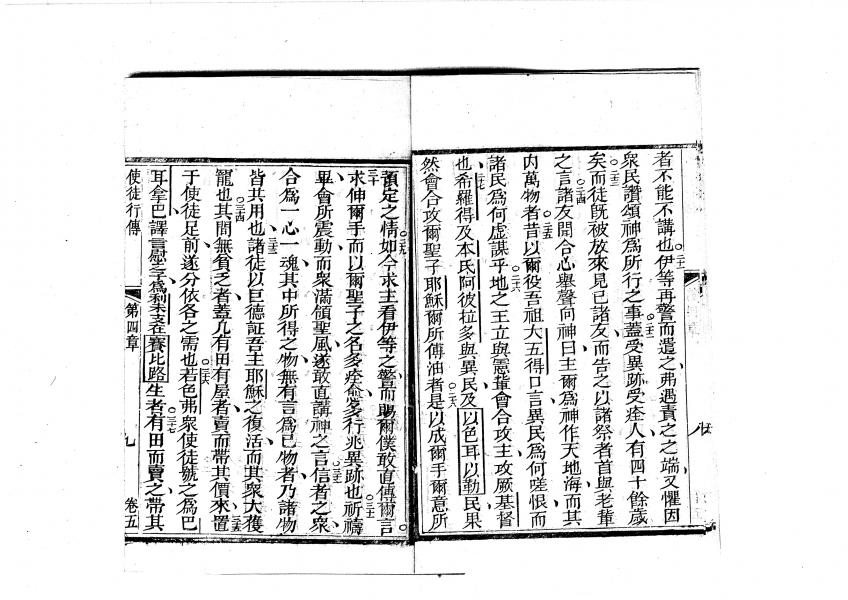 者不能不講也○二十一伊等再警而遣之弗遇責之之端又懼因
衆民讚頌神爲所行之事○二十二蓋受異跡受痊人有四十餘歲
矣○二十三而徒旣被放來見已諸友而告之以諸祭者首與老輩
之言○二十四諸友聞合心舉聲向神曰主爾爲神作天地海而其
內萬物者○二十五昔以爾役吾祖大五得口言異民爲何嗟恨而
諸民爲何虛謀乎○二十六地之王立與憲輩會合攻主攻厥基督
也○二十七希羅得及本氏阿彼拉多與異民及以色耳以勒民果
然會合攻爾聖子耶穌爾所傅油者○二十八是以成爾手爾意所
預定之情○二十九如今求主看伊等之警而賜爾僕敢直傳爾言○
三十求伸爾手而以爾聖子之名多痊愈多行兆異跡也○三十一祈禱
畢會所震動而衆滿領聖風遂敢直講神之言○三十二信者之衆
合爲一心一魂其中所得之物無有言爲已物者乃諸物
皆共用也○三十三諸徒以巨德証吾主耶穌之復活而其衆大獲
寵也○三十四其間無貧乏者蓋凡有田有屋者賣而帶其價來○三十五置
于使徒足前遂分依各之需也○三十六若色弗衆使徒號之爲巴
耳拿巴譯言慰之子爲利未支在賽比路生者○三十七有田而賣之帶其
使徒行傳
第四章
九
卷五